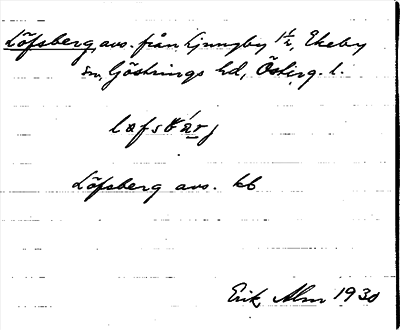 Löfsberg, avs. från Ljungby 1/2, Ekeby
sn, Göstrings hd, Österg. l.
Löfsberg avs. kb
Erik Alm 1930